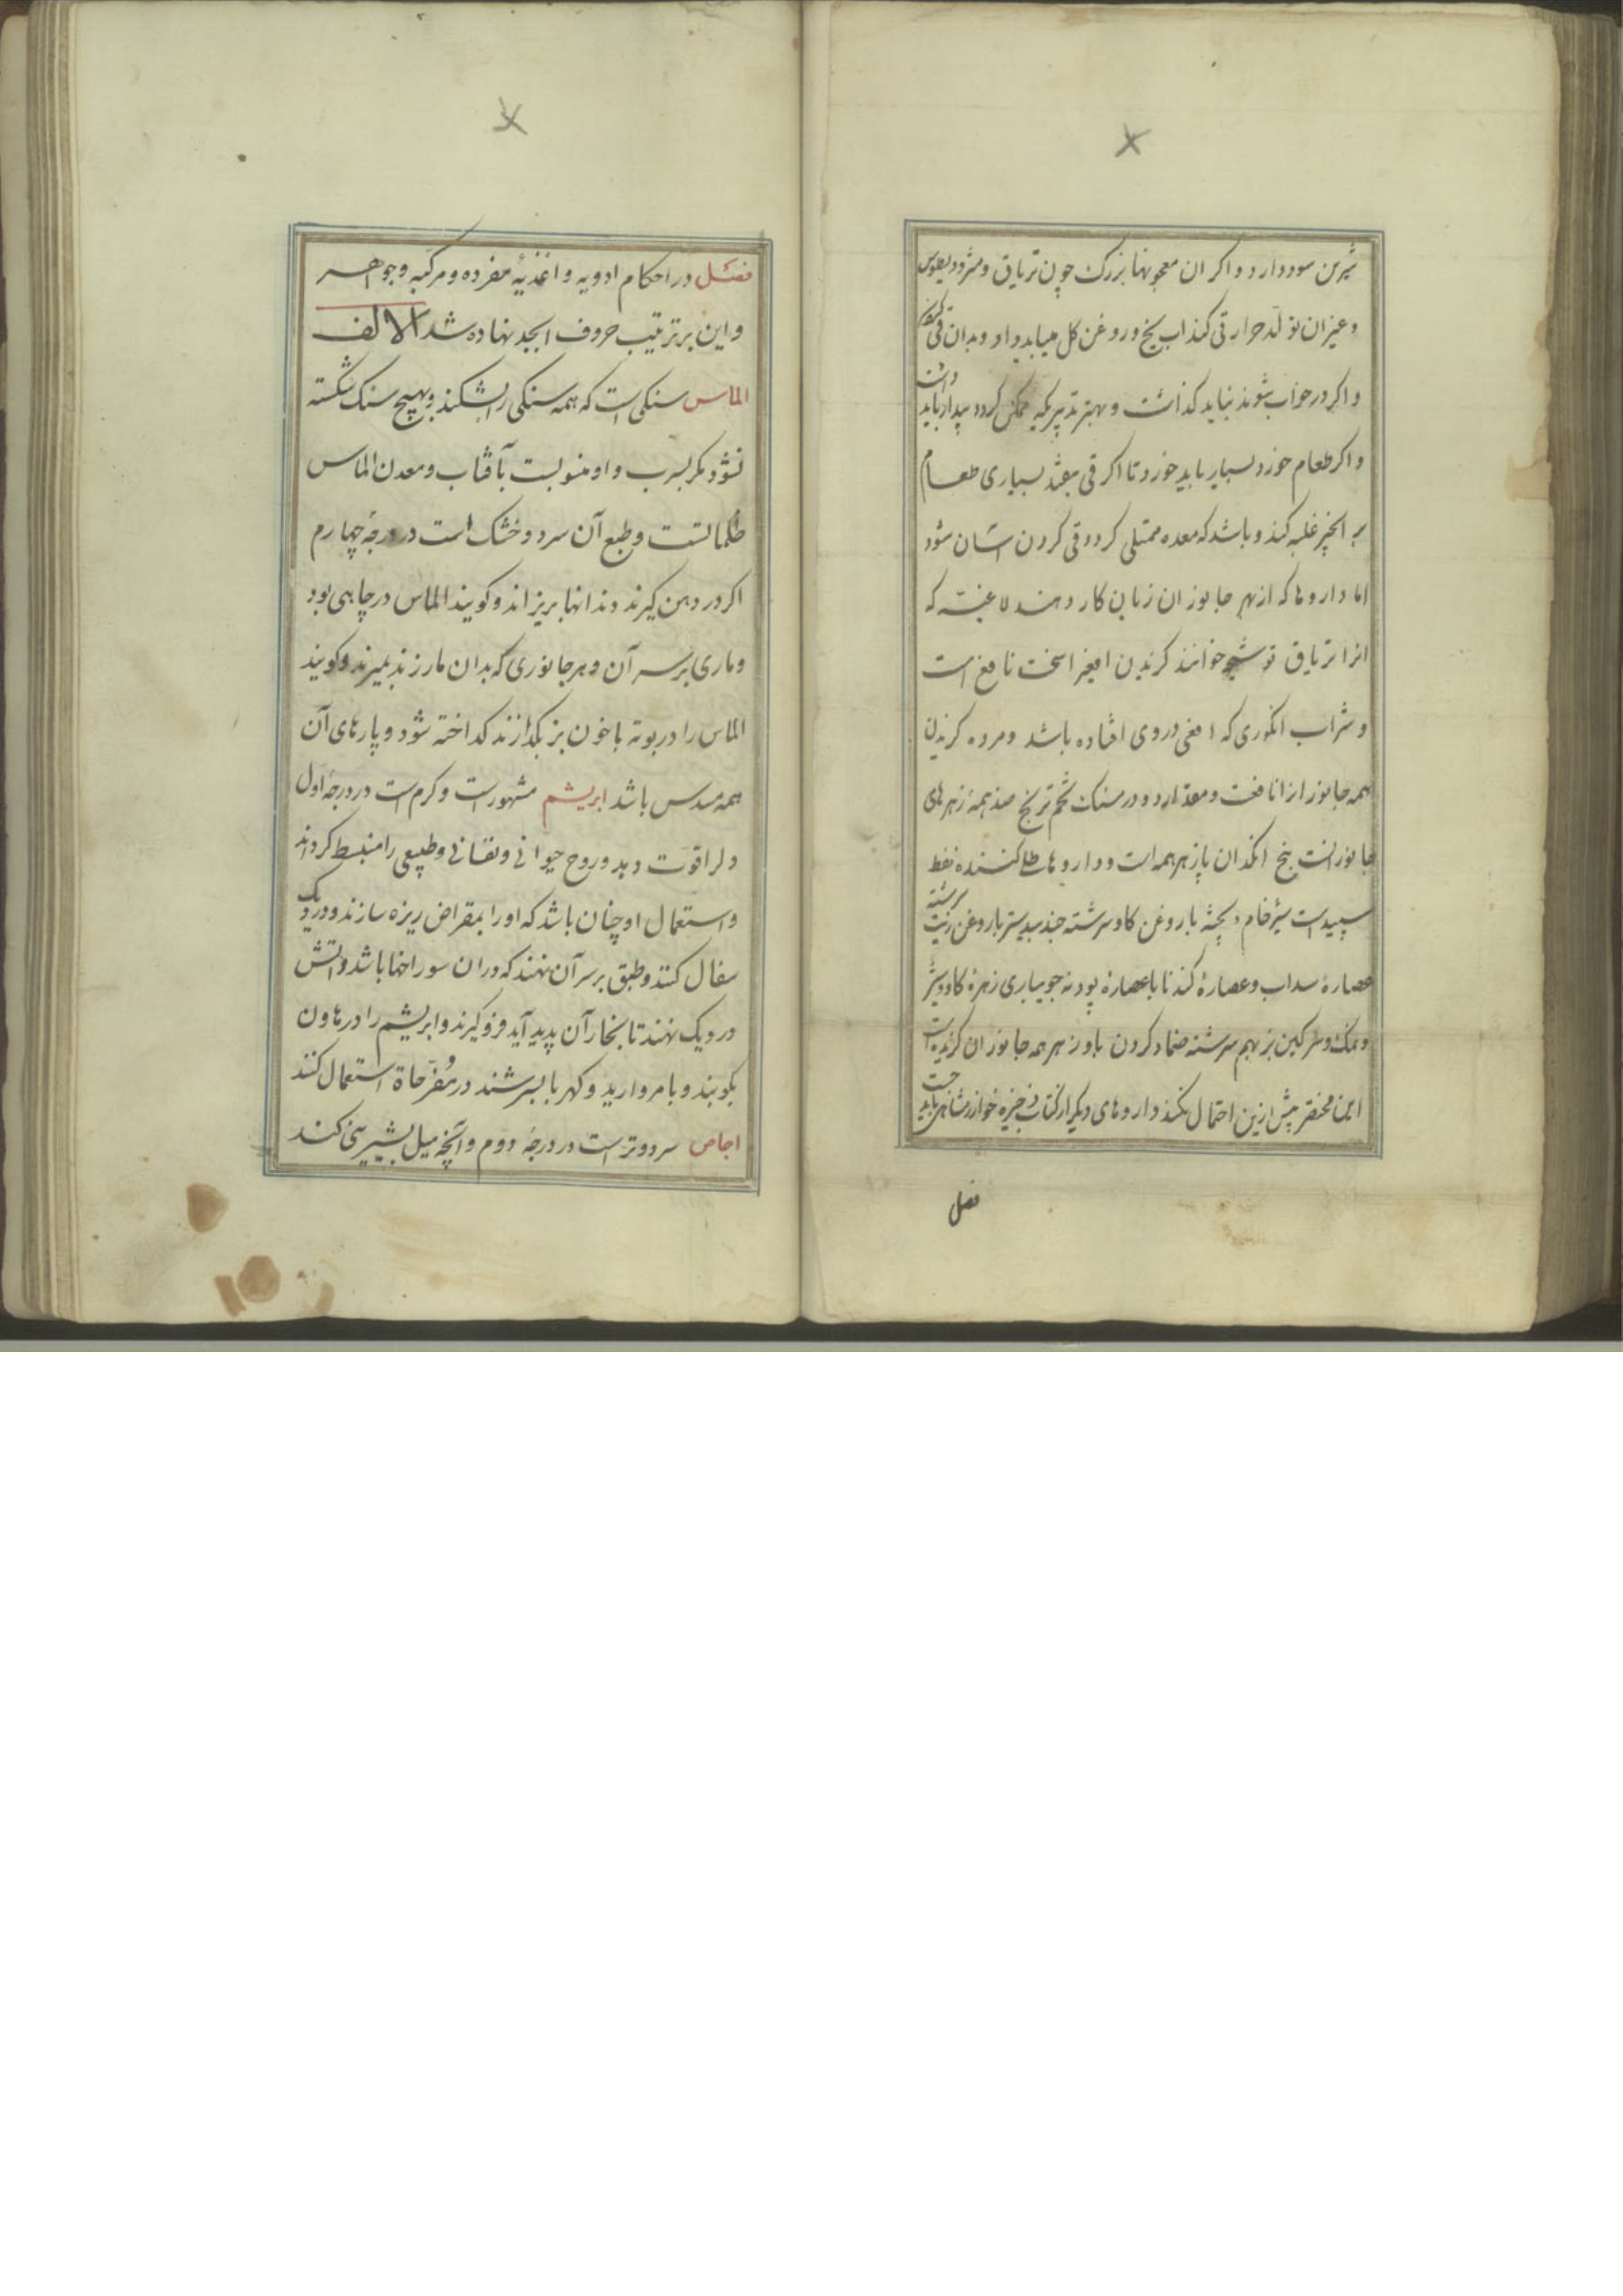 شیرین سود دارد و اکر ان معجونها بزرک چون تریاق و مثرودیطوس
و غیر ان تولد حرارتی کند اب یخ و روغن کل میباید داد و بدان قی
و اکر در خواب شوند نباید کذاشت و بهتر تدبیر که ممکن کردد بیدار باید داشت
و اکر طعام خورد بسیار باید خورد تا اکر قی نیفتد بسیاری طعام
بر انچیز غلبه کند و باشد که معده ممتلی کردد و قی کردن اسان شود
اما داروها که از بهر جانوران زیان کار دهند لاعیه که
انرا تریاق خوانند کزیدن افعی را سخت نافع است
و شراب انکوری که افعی در وی افتاده باشد و مرده کزیدن
همه جانور انرا نافعست و مقدار دو درمسنک تخم ترنج ضد همه زهرهای
جانورانست بیخ انکدان پازهر همه است و داروها طلا کننده نفط
سپیدست سیر خام و پخته با روغن کاو سرشته جندبیدستر با روغن زیت سرشته
عصاره سداب و عصاره کندنا با عصاره پودنه جویباری زهره کاو و شیر
و نمک و سرکین بز بهم سرشته ضماد کردن پادزهر همه جانوران کزنده است
این مختصر بیش ازین احتمال نکند داروهای دیکر از کتاب ذخیره خوارزمشاهی باید جست
فصل
فصل در احکام ادویه و اغذیه مفرده و مرکبه و جواهر
و این بر ترتیب حروف ابجد نهاده شد الالف
الماس سنکی است که همه سنکی را بشکند و بهیچ سنک شکسته
نشود مکر بسرب و او منسوبست بآفتاب و معدن الماس
ظلماتست و طبع آن سرد و خشک است در درجه چهارم
اکر در دهن کیرند دندانها بریزاند و کویند الماس در چاهی بود
و ماری بر سر آن و هر جانوری که بدان مار زند بمیرند و کویند
الماس را در بوته با خون بز بکدازند کداخته شود و پارهای آن
همه مسدس باشد ابریشم مشهورست و کرم است در درجه اول
دلرا قوت دهد و روح حیوانی و نفسانی و طبیعی را منبسط کرداند
و استعمال او چنان باشد که او را بمقراض ریزه سازند و در دیک
سفال کنند و طبق بر سر آن نهند که در ان سوراخها باشد و اتش
در دیک نهند تا بخار آن پدید آید فرو کیرند و ابریشم را در هاون
بکوبند و با مروارید و کهربا بسرشند در مفرحاة استعمال کنند
اجاص سرد و ترست در درجه دوم و آنچه میل بشیرینی کند